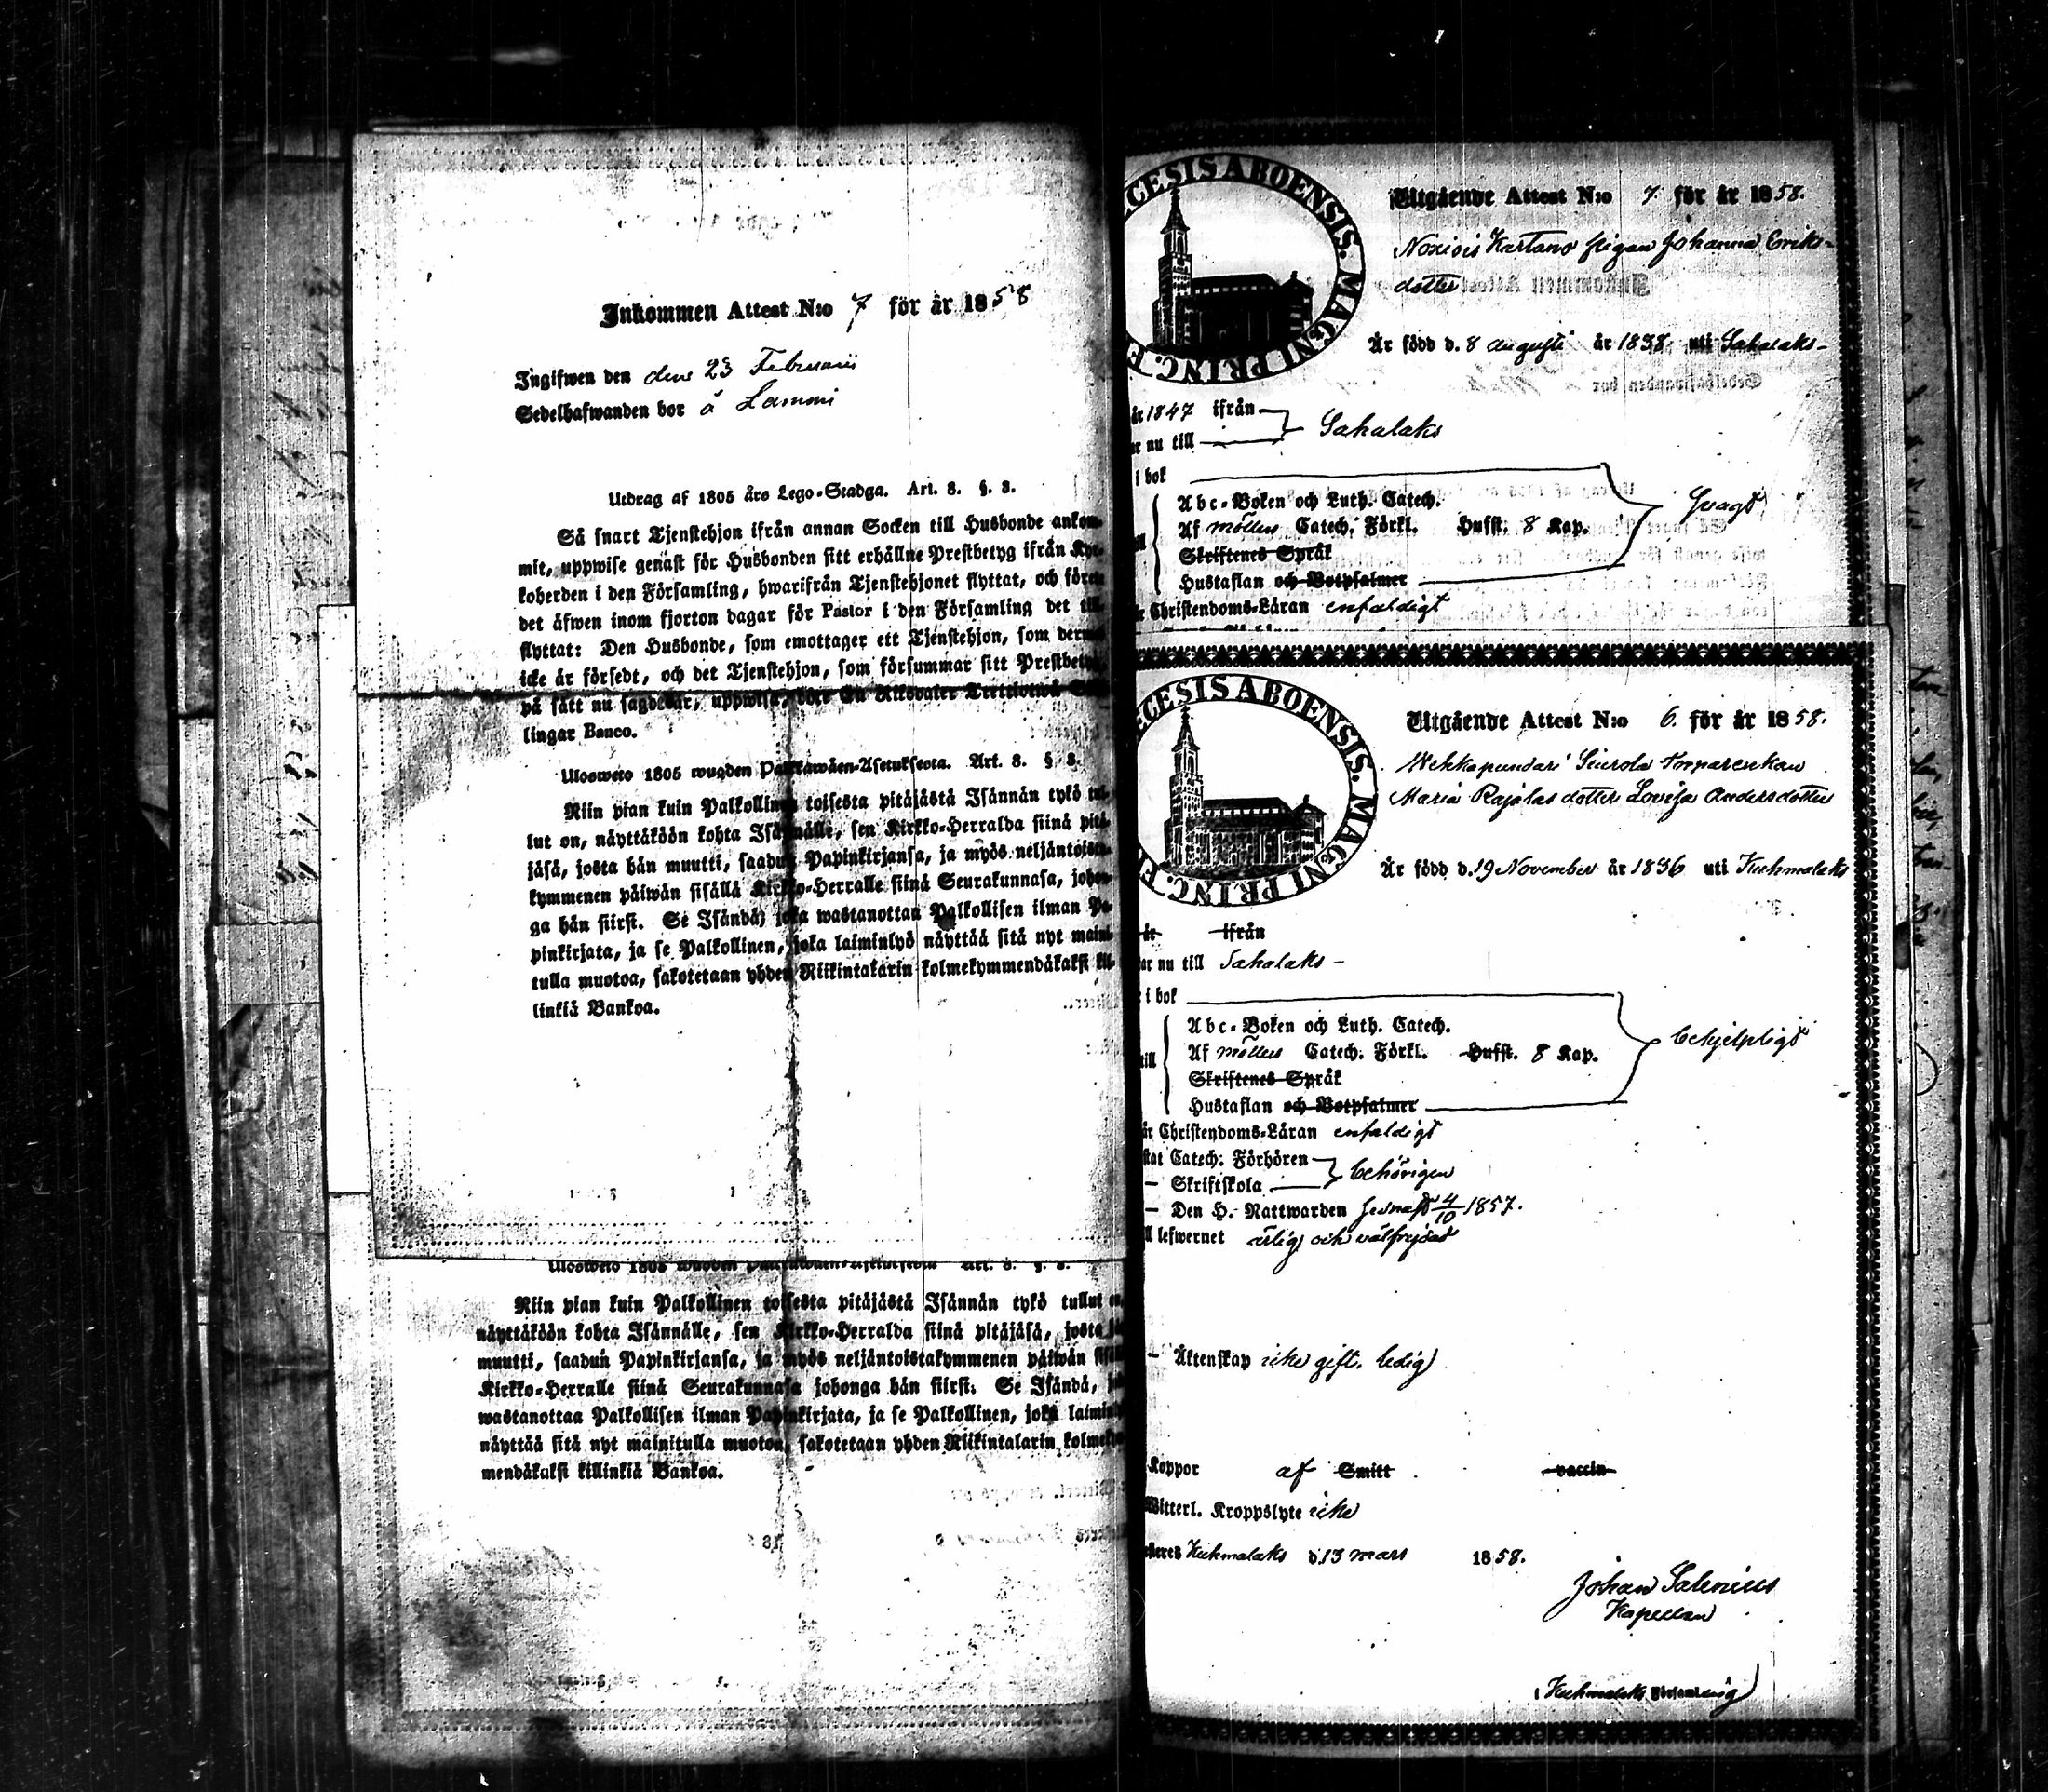 Inkommen Attest N:o 7 för år 1858
Ingifwen den den 23 Februarii
Sedelhafwanden bor å Lammi
Utdrag af 1805 års Lego-Stadga. Art. 8. §. 8.
Så snart Tjenstehjon ifrån annan Socken till Husbonde ankom-
mit, uppwise genast för Husbonden sitt erhållne Prestbetyg ifrån Kyr-
koherden i den Församling, hwarifrån Tjenstehjonet flyttat, och förete
det äfwen inom fjorton dagar för Pastor i den Församling det till-
flyttat: Den Husbonde, som emottager ett Tjenstehjon, som dermed
icke är försedt, och det Tjenstehjon, som försummar sitt Prestbetyg
på sätt nu sagdt är, uppwisa, böte En Riksdaler Trettiotwå Skil-
lingar Banco.
Ulosweto 1805 wuoden Palkkawäen-Asetuksesta. Art. 8. §. 8.
Niin pian kuin Palkollinen toisesta pitäjästä Isännän tykö tul-
lut on, näyttäköön kohta Isännälle, sen Kirkko-Herralda siinä pitä-
jäsä, josta hän muutti, saadun Papinkirjansa, ja myös neljäntoista-
kymmenen päiwän sisällä Kirkko-Herralle siinä Seurakunnasa, johon-
ga hän siirst. Se Isändä, joka wastanottaa Palkollisen ilman Pa-
pinkirjata, ja se Palkollinen, joka laiminlyö näyttää sitä nyt maini-
tulla muotoa, sakotetaan yhden Riikintalarin kolmekymmendäkaksi kil-
linkiä Bankoa.
Ulosweto 1805 wuoden Palkkawäen-Asetuksesta Art. 8. §. 8.
Niin pian kuin Palkollinen toisesta pitäjästä Isännän tykö tullut on,
näyttäköön kohta Isännälle, sen Kirkko-Herralda siinä pitäjäsä, josta
muutti, saadun Papinkirjansa, ja myös neljäntoistakymmenen päiwän sisäl
Kirkko-Herralle siinä Seurakunnasa johonga hän siirst. Se Isändä,
wastanottaa Palkollisen ilman Papinkirjata, ja se Palkollinen, joka laimin
näyttää sitä nyt mainitulla muotoa, sakotetaan yhden Riikintalarin kolmeky
mendäkaksi killinkiä Bankoa.
CESIS ABOENSIS. MAGNI PRINC. F
Utgående Attest N:o 7. för år 1858.
Kartano pigan Johanna Eriks-
dotter
Är född d. 8 augusti år 1838 uti Sahalaks-
år 1847 ifrån
ar nu till Sahalaks
i bok
Abc-Boken och Luth. Catech.
Af möllers Catech. Förkl. Hufst. 8 Kap. Svagt
Skriftenes Språk
Hustaflan och Botpsalmer
är Christendoms-Läran enfaldigt
ECESIS ABOENSIS. MAGNI PRINC. F
Utgående Attest N:o 6. för år 1858.
Wehkapundari Seurola torparenkan
Maria Rajalas dotter Lovisa Andersdotter
Är född d. 19 November år 1836 uti Kuhmalaks
år ifrån
ar nu till Sahalaks-
i bok
Abc-Boken och Luth. Catech.
Af möllers Catech. Förkl. Hufst. 8 Kap. behjelpligt
Skriftenes Språk
Hustaflan och Botpsalmer
är Christendoms-Läran enfaldigt
stat Catech. Förhören
- Skriftskola behörigen
- Den H. Nattwarden senast 4/10 1857.
ll lefwernet ärlig och välfrejdad
- Äktenskap icke gift. ledig
Koppor af Smitt vaccin
Witterl. Kroppslyte icke
Kuhmalaks d. 13 mars 1858.
Johan Salenius
Kapellan
(Kuhmalaks Församling)